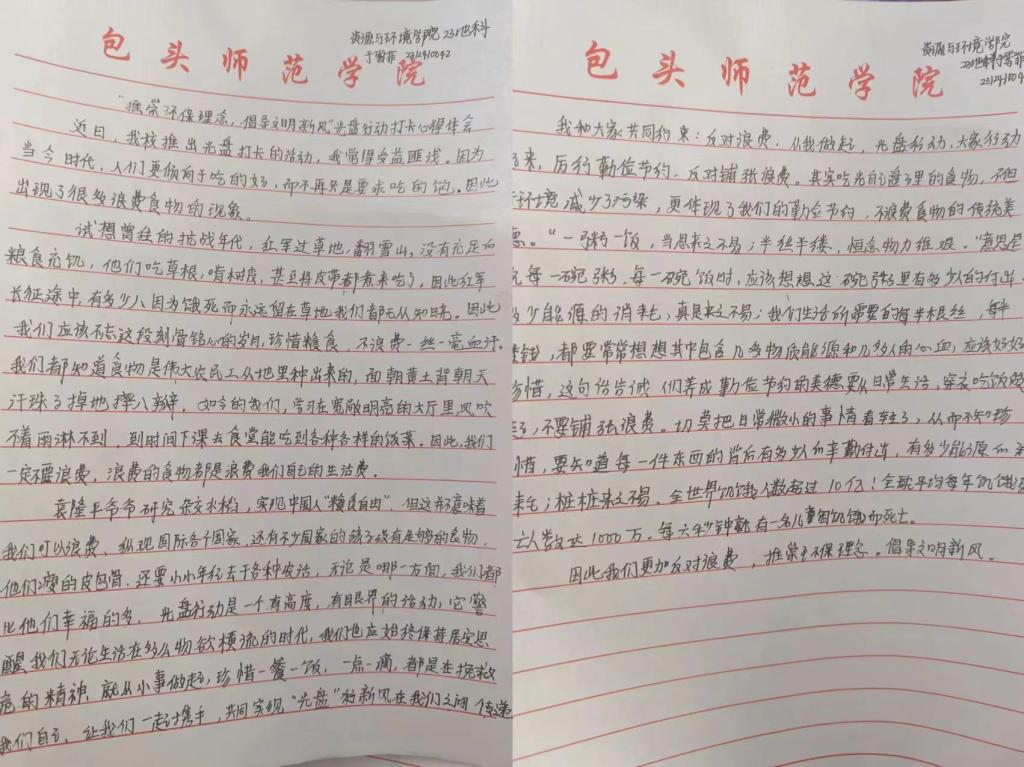 包头师范学院
资源与环境学院 231地科
于雪菲 2312410042
“推崇环保理念,倡导文明新风”光盘行动打卡心得体会
近日,我校推出光盘打卡的活动,我觉得受益匪浅。因为
当今时代,人们更倾向于吃的好,而不再只是要求吃的饱。因此
出现了很多浪费食物的现象。
试想曾经的抗战年代,红军过草地,翻雪山,没有充足的
粮食充饥,他们吃草根,啃树皮,甚至将皮带都煮来吃了,因此红军
长征途中,有多少人因为饿死而永远留在草地我们都无从知晓。因此
我们应该不忘这段刻骨铭心的岁月,珍惜粮食,不浪费一丝一毫血汗。
我们都知道食物是伟大农民工从地里种出来的,面朝黄土背朝天
汗珠子掉地摔八瓣。如今的我们,学习在宽敞明亮的大厅里风吹
不着雨淋不到,到时间下课去食堂能吃到各种各样的饭菜。因此,我们
一定不要浪费,浪费的食物都是浪费我们自己的生活费。
袁隆平爷爷研究杂交水稻,实现中国人“粮食自由”,但这并不意味着
我们可以浪费,纵观国际各个国家,还有不少国家的孩子没有足够的食物,
他们瘦的皮包骨,还要小小年纪去干各种农活,无论是哪一方面,我们都
比他们幸福的多,光盘行动是一个有高度,有眼界的活动,它警
醒我们无论生活在多么物欲横流的时代,我们也应始终保持居安思
危的精神,就从小事做起,珍惜一餐一饭,一点一滴,都是在挽救
我们自己,让我们一起携手,共同实现“光盘”的新风在我们之间传递
包头师范学院
资源与环境学院
231地科于雪菲
231241004
我和大家共同约束:反对浪费,从我做起,光盘行动,大家行动
来,厉行勤俭节约,反对铺张浪费。其实吃光自己盘子里的食物,不但
环境减少了污染,更体现了我们的勤俭节约,不浪费食物的传统美
德。“一粥一饭,当思来之不易;半丝半缕,恒念物力维艰。”意思是
每一碗粥,每一碗饭时,应该想想这一碗粥里有多少人的付出,
多少能源的消耗,真是来之不易;我们生活所需要的每半根丝,每半
缕线,都要常常想想其中包含几多物质能源和几多人的心血,应该好好
珍惜,这句俗告诫人们养成勤俭节约的美德要从日常生活,穿衣吃饭做
起,不要铺张浪费。切莫把日常微小的事情看轻了,从而不知珍
惜,要知道每一件东西的背后有多少人的辛勤付出,有多少能源的消
耗;桩桩来之不易。全世界饥饿人数超过10亿!全球平均每年饥饿死
亡人数达1000万。每六秒钟就有一名儿童因饥饿而死亡。
因此我们更加反对浪费,推崇环保理念。倡导文明新风。